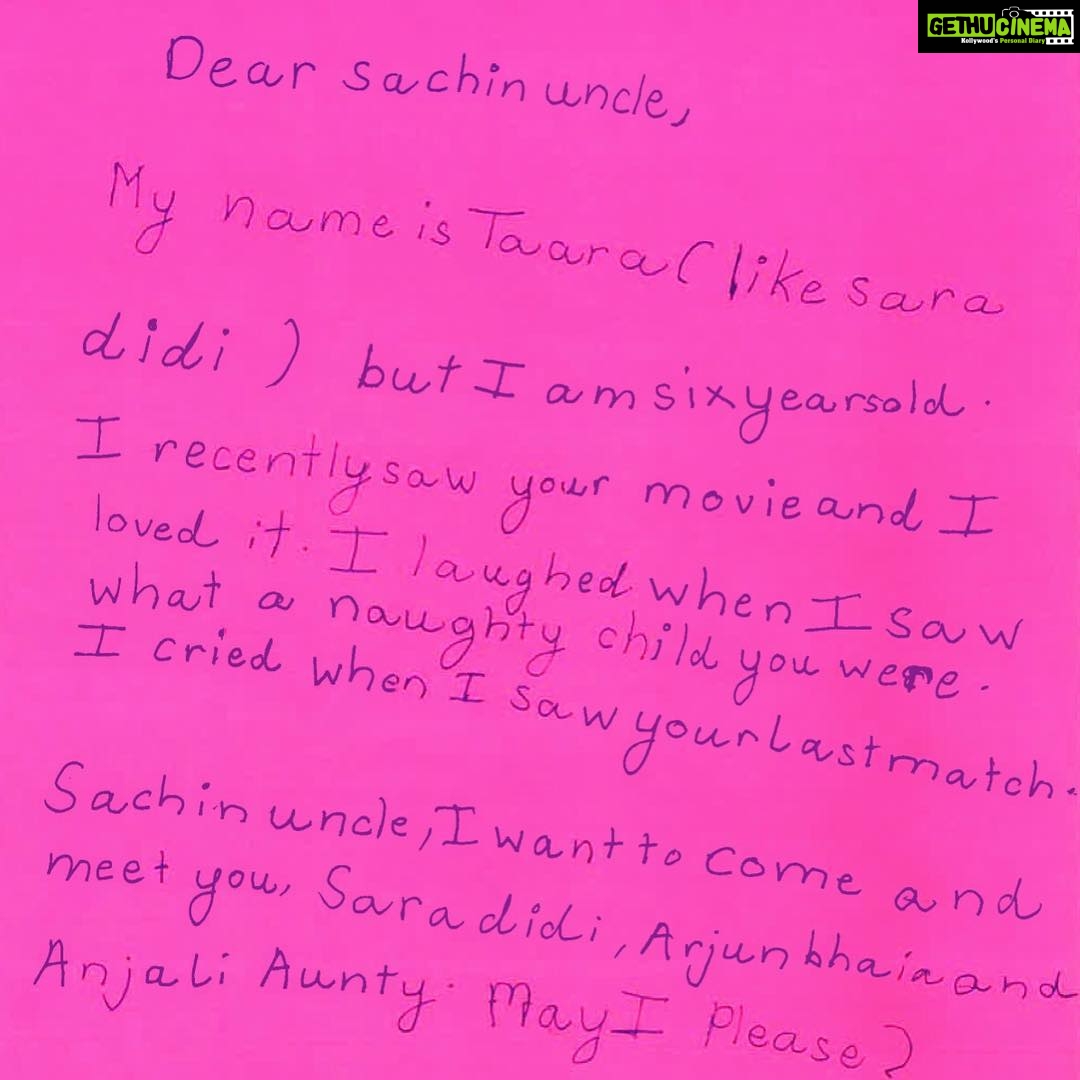 GETHUCINEMA
Kollywood's Personal Diary
Dear sachin uncle,
My name is Taara ( like sara
didi ) but I am six years old .
I recently saw your movie and I
loved it. I laughed when I saw
what a naughty child you were.
I cried when I saw your last match.
Sachin uncle, I want to come and
meet you, Sara didi, Arjun bhaia and
Anjali Aunty. May I Please?